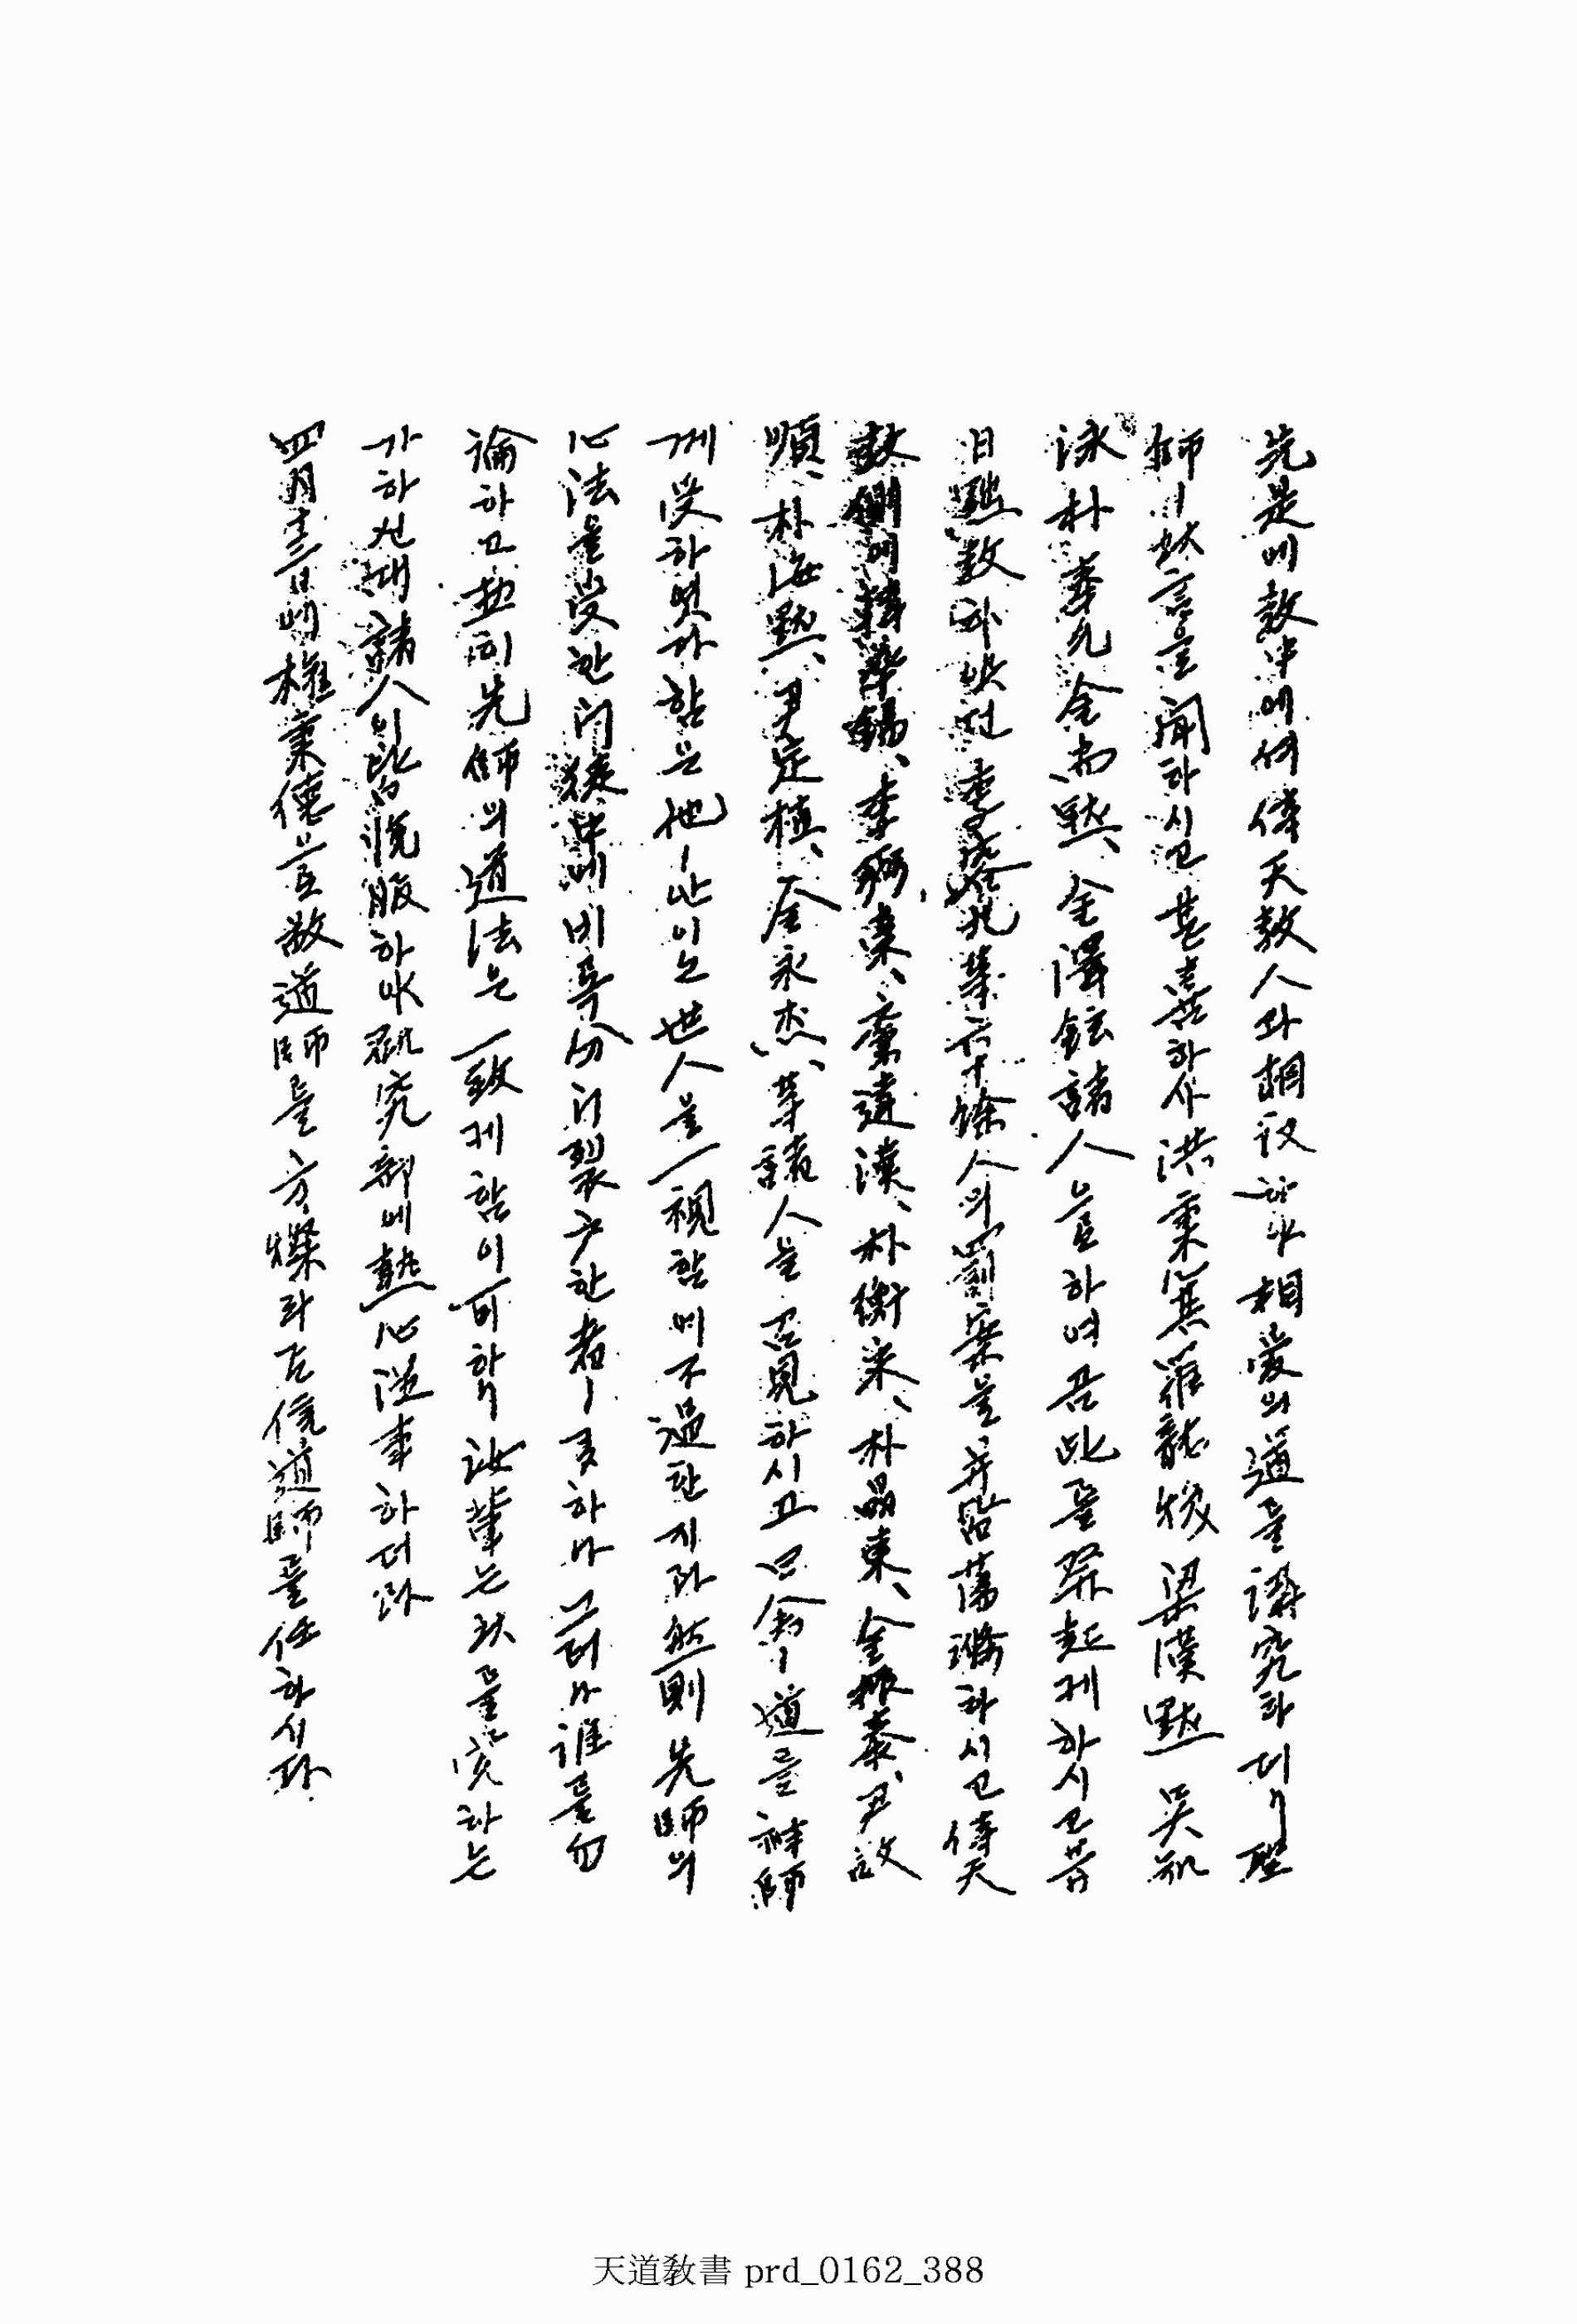 先是에 敎中에셔 侍天敎人과 相議하야 相愛의 道를 講究하더니 聖
師ㅣ 此言을 聞하시고 甚喜하사 洪秉箕 羅龍煥 梁漢默 吳知
泳 朴 金 默、金 鉉 諸人을 하여곰 此를 起케 하시고 昔
日 敎하얏던 李 九 等 六十餘人의 罰案을 并皆蕩滌하시고 侍天
敎側에 韓華錫、李 東、 漢、朴衡采、朴晶東、金 泰、尹
順、朴海默、尹定植、全永杰、等 諸人을 召見하시고 曰 余ㅣ 道를 神師
께 受하엿다 함은 他ㅣ 안이오 世人을 一視함에 不過한지라 然則 先師의
心法을 受한 门徒中에 비록 分门裂户한 者ㅣ 多하나 그러나 誰를 勿
論하고 先師의 道法은 一致케 함이 可할지니 汝輩는 此를 究하는
가 하신대 諸人이 皆悅服하야 硏究部에 熱心從事하더라
四月 日에 權秉悳은 敬道師를 方燦斗는 信道師를 任하시다
天道敎書 prd_0162_388